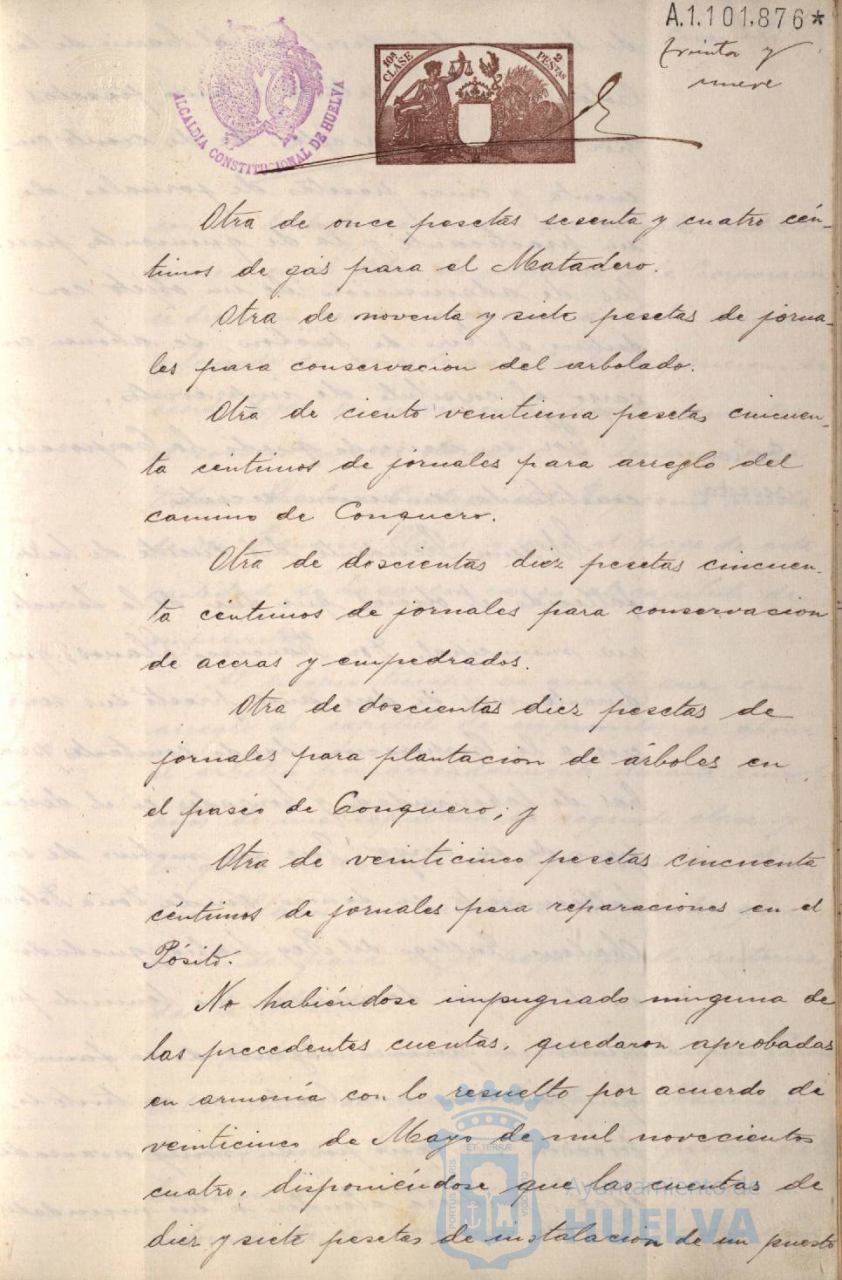 A.1.101,876*
treinta y
nueve
ALCALDIA CONSTITUCIONAL DE HUELVA
10ª CLASE
2 PESTAS
Otra de once pesetas sesenta y cuatro cén-
timos de gas para el Matadero.
Otra de noventa y siete pesetas de jorna-
les para conservacion del arbolado.
Otra de ciento veintiuna pesetas cincuen-
ta céntimos de jornales para arreglo del
camino de Conquero.
Otra de doscientas diez pesetas cincuen-
ta céntimos de jornales para conservacion
de aceras y empedrados.
Otra de doscientas diez pesetas de
jornales para plantacion de árboles en
el paseo de Conquero; y
Otra de veinticinco pesetas cincuenta
céntimos de jornales para reparaciones en el
Pósito.
No habiéndose impugnado ninguna de
las precedentes cuentas, quedaron aprobadas
en armonía con lo resuelto por acuerdo de
veinticinco de Mayo de mil novecientos
cuatro, disponiéndose que las cuentas de
diez y siete pesetas de instalacion de un puesto
PORTUS MARIS ET TERRÆ CUSTODIA
Ayuntamiento de
HUELVA